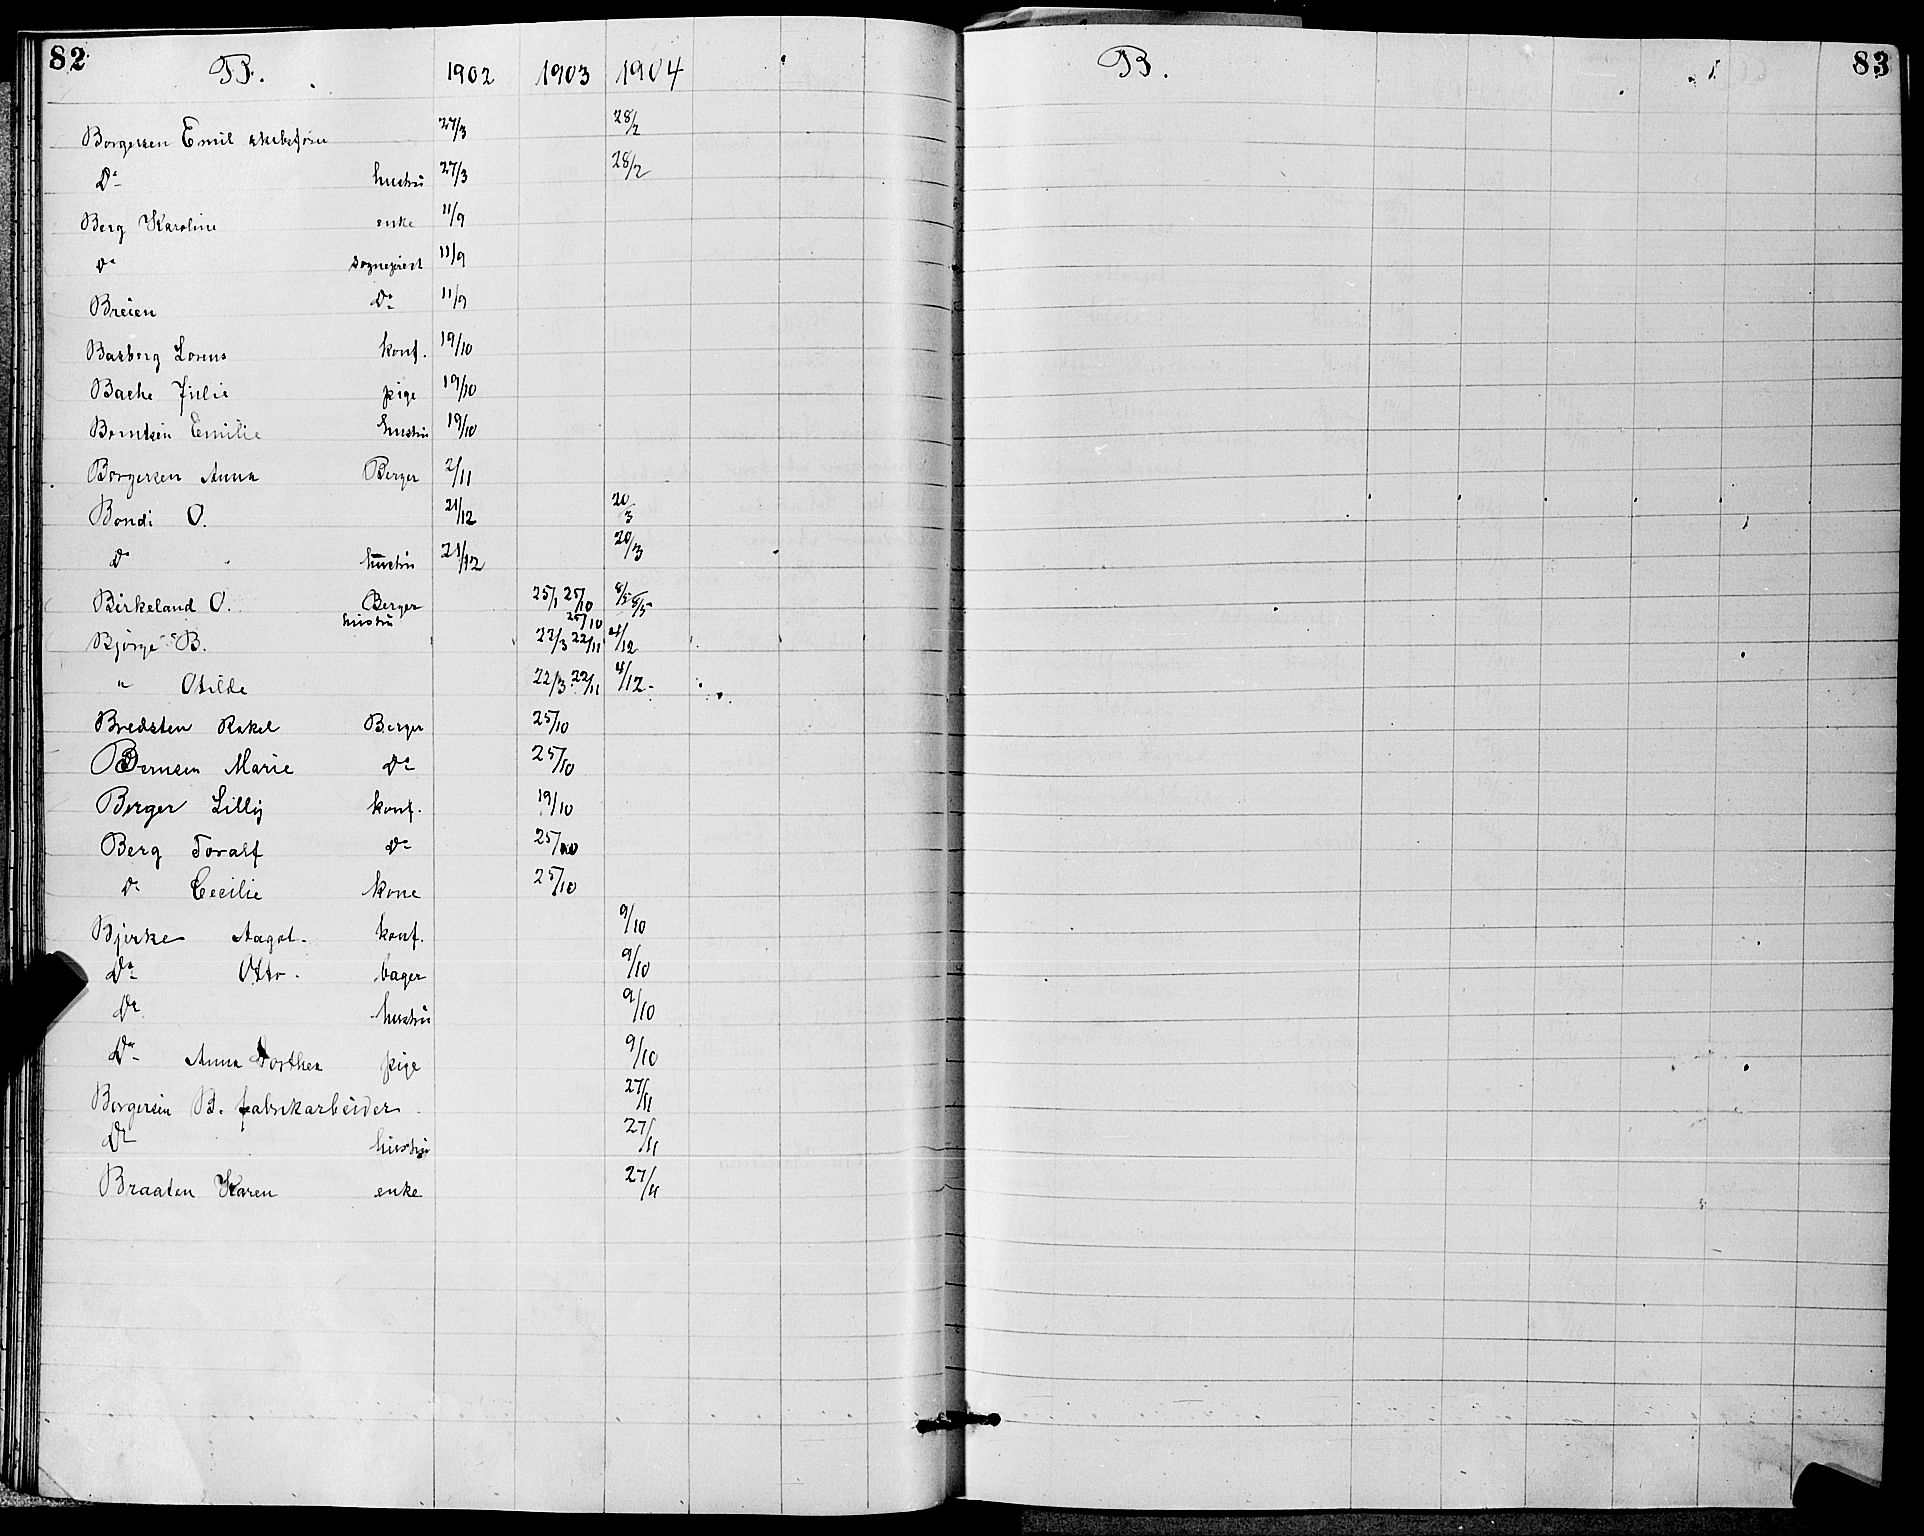 82 B. 1902 1903 1904
Borgersen Emil skibsfører 27/3 28/2
Do hustru 27/3 28/2
Berg Karoline enke 11/9
Do sogneprest 11/9
Breien Do 11/9
Basberg Lorens konf. 19/10
Bache Julie pige 19/10
Berntsen Emilie hustru 19/10
Borgersen Anna Berger 2/11
Bondi O. 21/12 20/3
Do hustru 21/12 20/3
Birkeland O. Berger 25/1 25/10 8/5 8/5
hustru 25/10
Bjørge B. 22/3 22/11 4/12
" Otilde 22/3 22/11 4/12
Bredsten Rakel Berger 25/10
Marie Do 25/10
Berger Lilly konf. 19/10
Berg Toralf Do 25/10
Do Cecilie kone 25/10
Bjerke Aagot konf. 9/10
Do Otto bager 9/10
Do hustru 9/10
Do Anna Dorthea pige 9/10
Borgersen B. fabrikarbeider 27/11
Do hustru 27/11
Braaten Karen enke 27/11
B. 83